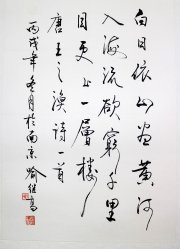 白日依山尽黄河
入海流欲穷千里
目更上一层楼
唐王之涣诗一首
丙戌年冬月于南京喻继高